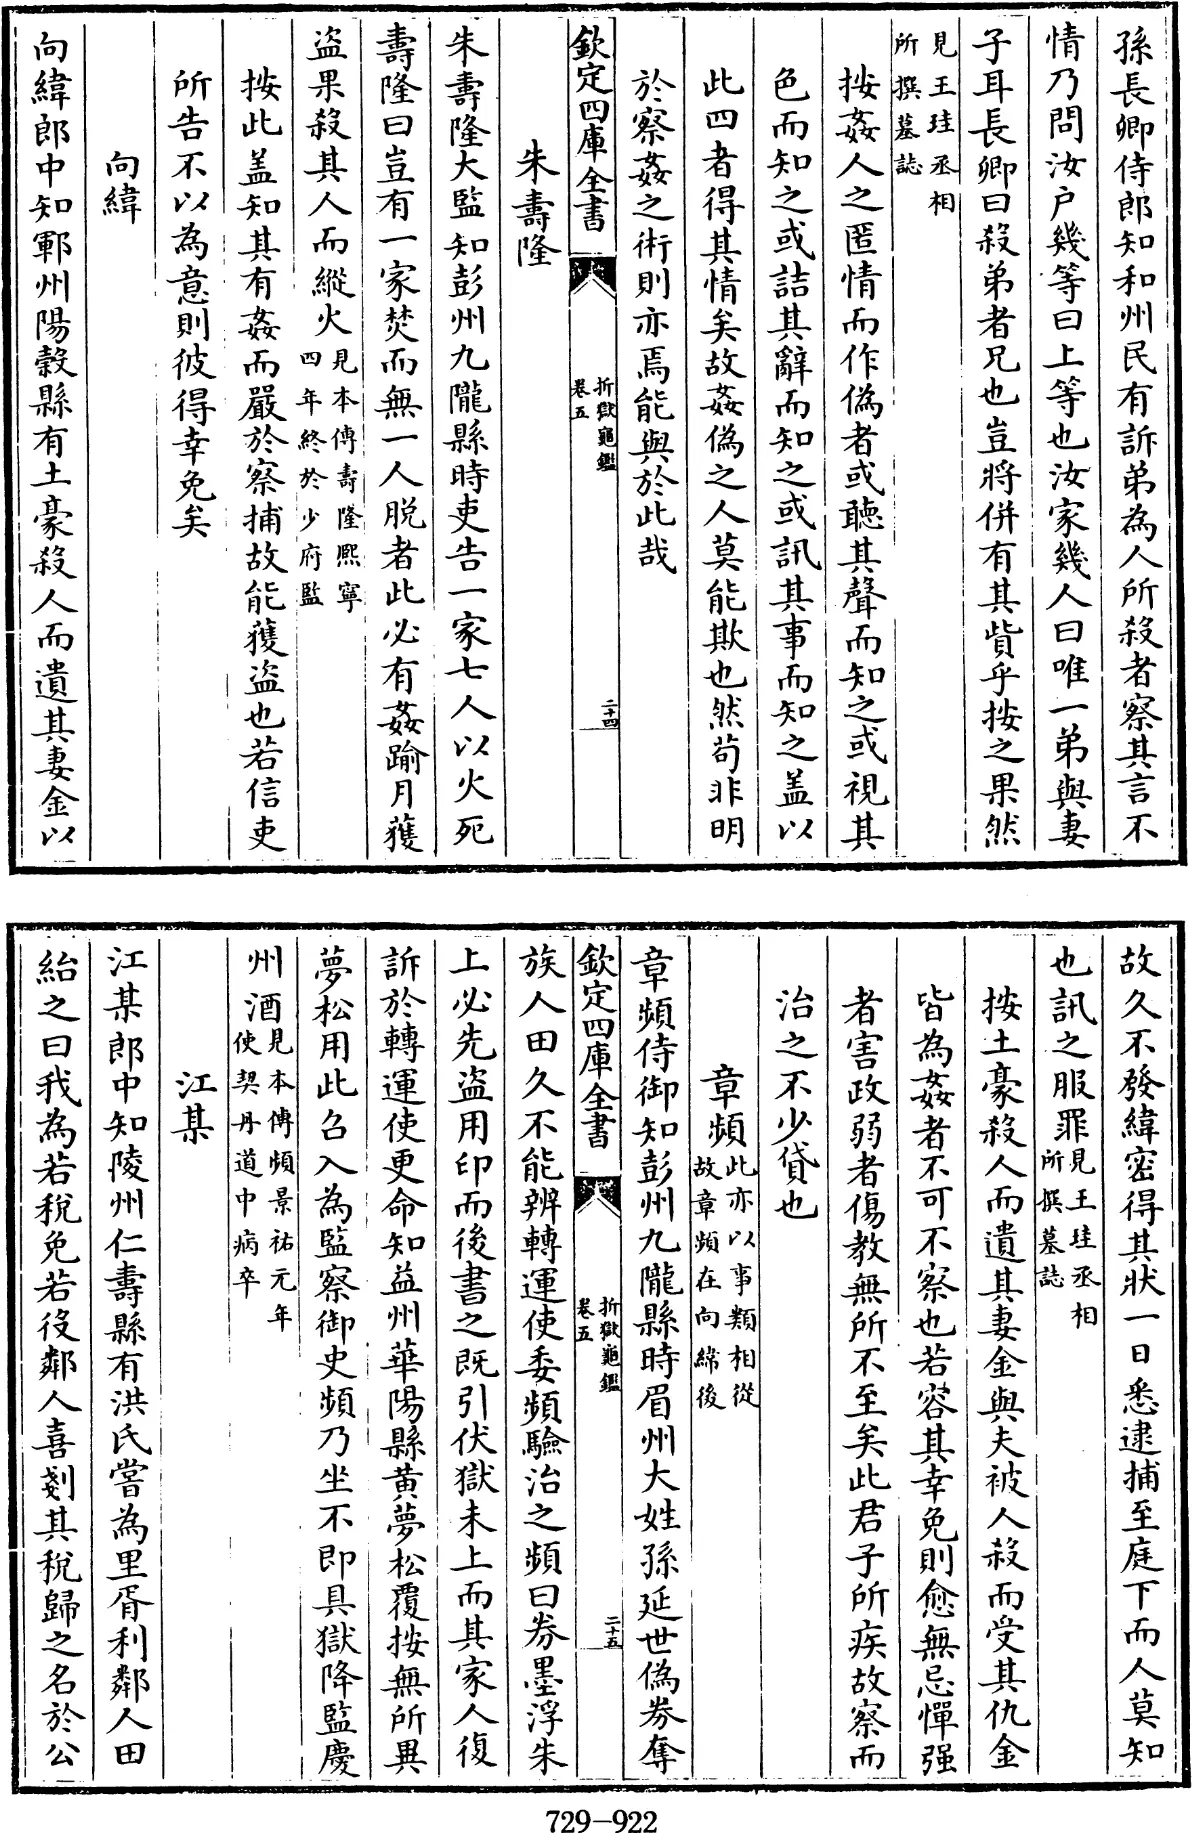 孫長卿侍郎知和州民有訴弟為人所殺者察其言不
情乃問汝户幾等曰上等也汝家幾人曰唯一弟與妻
子耳長卿曰殺弟者兄也豈將併有其貲乎按之果然
見王珪丞相
所撰墓誌
按姦人之匿情而作偽者或聽其聲而知之或視其
色而知之或詰其辭而知之或訊其事而知之盖以
此四者得其情矣故姦偽之人莫能欺也然苟非明
於察姦之術則亦焉能與於此哉
欽定四庫全書
折獄龜鑑
卷五
二十四
朱壽隆
朱壽隆大監知彭州九隴縣時吏告一家七人以火死
壽隆曰豈有一家焚而無一人脱者此必有姦踰月獲
盗果殺其人而縱火見本傳壽隆熙寧
四年終於少府監
按此盖知其有姦而嚴於察捕故能獲盗也若信吏
所告不以為意則彼得幸免矣
向緯
向緯郎中知鄆州陽穀縣有土豪殺人而遺其妻金以
故久不發緯密得其狀一日悉逮捕至庭下而人莫知
也訊之服罪見王珪丞相
所撰墓誌
按土豪殺人而遺其妻金與夫被人殺而受其仇金
皆為姦者不可不察也若容其幸免則愈無忌憚强
者害政弱者傷教無所不至矣此君子所疾故察而
治之不少貸也
章頻此亦以事類相從
故章頻在向緯後
章頻侍御知彭州九隴縣時眉州大姓孫延世偽券奪
欽定四庫全書
折獄龜鑑
卷五
二十五
族人田久不能辨轉運使委頻驗治之頻曰券墨浮朱
上必先盗用印而後書之既引伏獄未上而其家人復
訴於轉運使更命知益州華陽縣黄夢松覆按無所異
夢松用此召入為監察御史頻乃坐不即具獄降監慶
州酒見本傳頻景祐元年
使契丹道中病卒
江某
江某郎中知陵州仁壽縣有洪氏嘗為里胥利鄰人田
紿之曰我為若稅免若役鄰人喜剗其稅歸之名於公
729-922